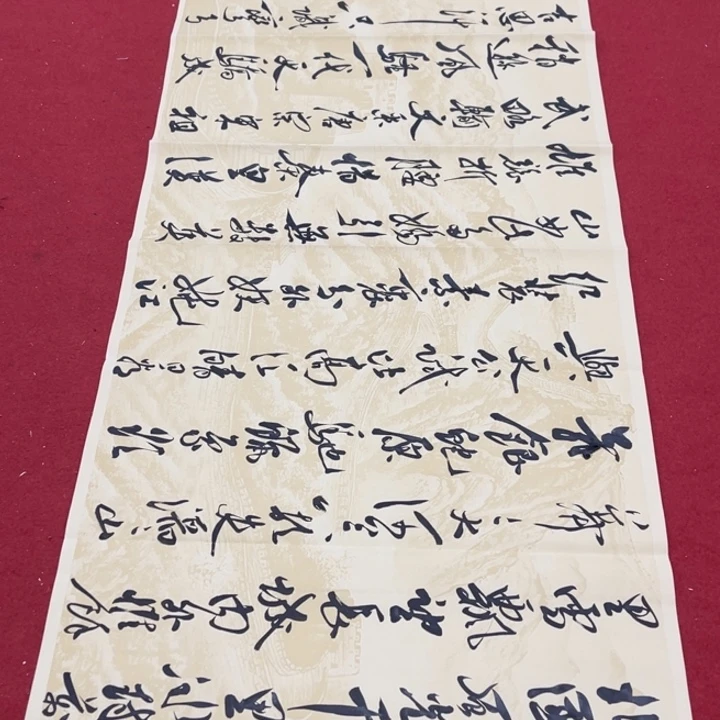 北国风光千里冰封万
里雪飘望长城内外惟余
莽莽大河上下顿失滔滔山
舞银蛇原驰蜡象欲
与天公试比高须晴日看
红装素裹分外妖娆江
山如此多娇引无数英
雄竞折腰惜秦皇汉
武略输文采唐宗宋祖
稍逊风骚一代天骄成
吉思汗只识弯弓